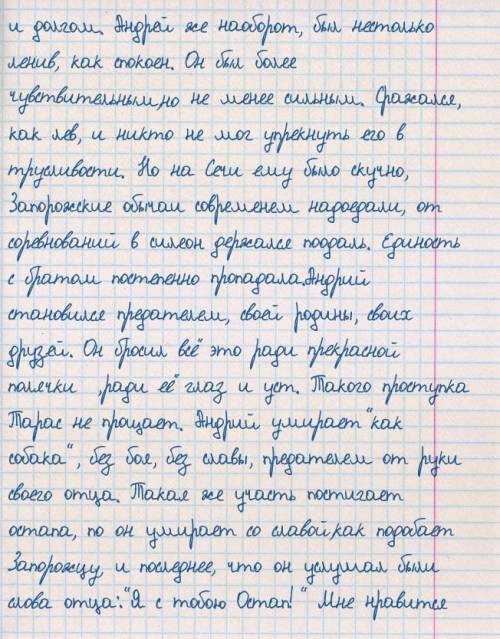 и долгом. Андрей же наоборот, был нестолько
ленив, как спокоен. Он был более
чувствительным,но не менее сильным. Сражался,
как лев, и никто не мог упрекнуть его в
трусливости. Но на Сечи ему было скучно,
Запорожские обычаи современем надоедали, от
соревнований в силеон держался поодаль. Единость
с братом постепенно пропадала.Андрий
становился предателем, своей родины, своих
друзей. Он бросил всё это ради прекрасной
полячки ,ради её глаз и уст. Такого проступка
Тарас не прощает. Андрий умирает "как
собака", без боя, без славы, предателем от руки
своего отца. Такая же участь постигает
остапа, но он умирает со славой,как подобает
Запорожцу, и последнее, что он услушал были
слова отца:"Я с тобою Остап!" Мне нравится